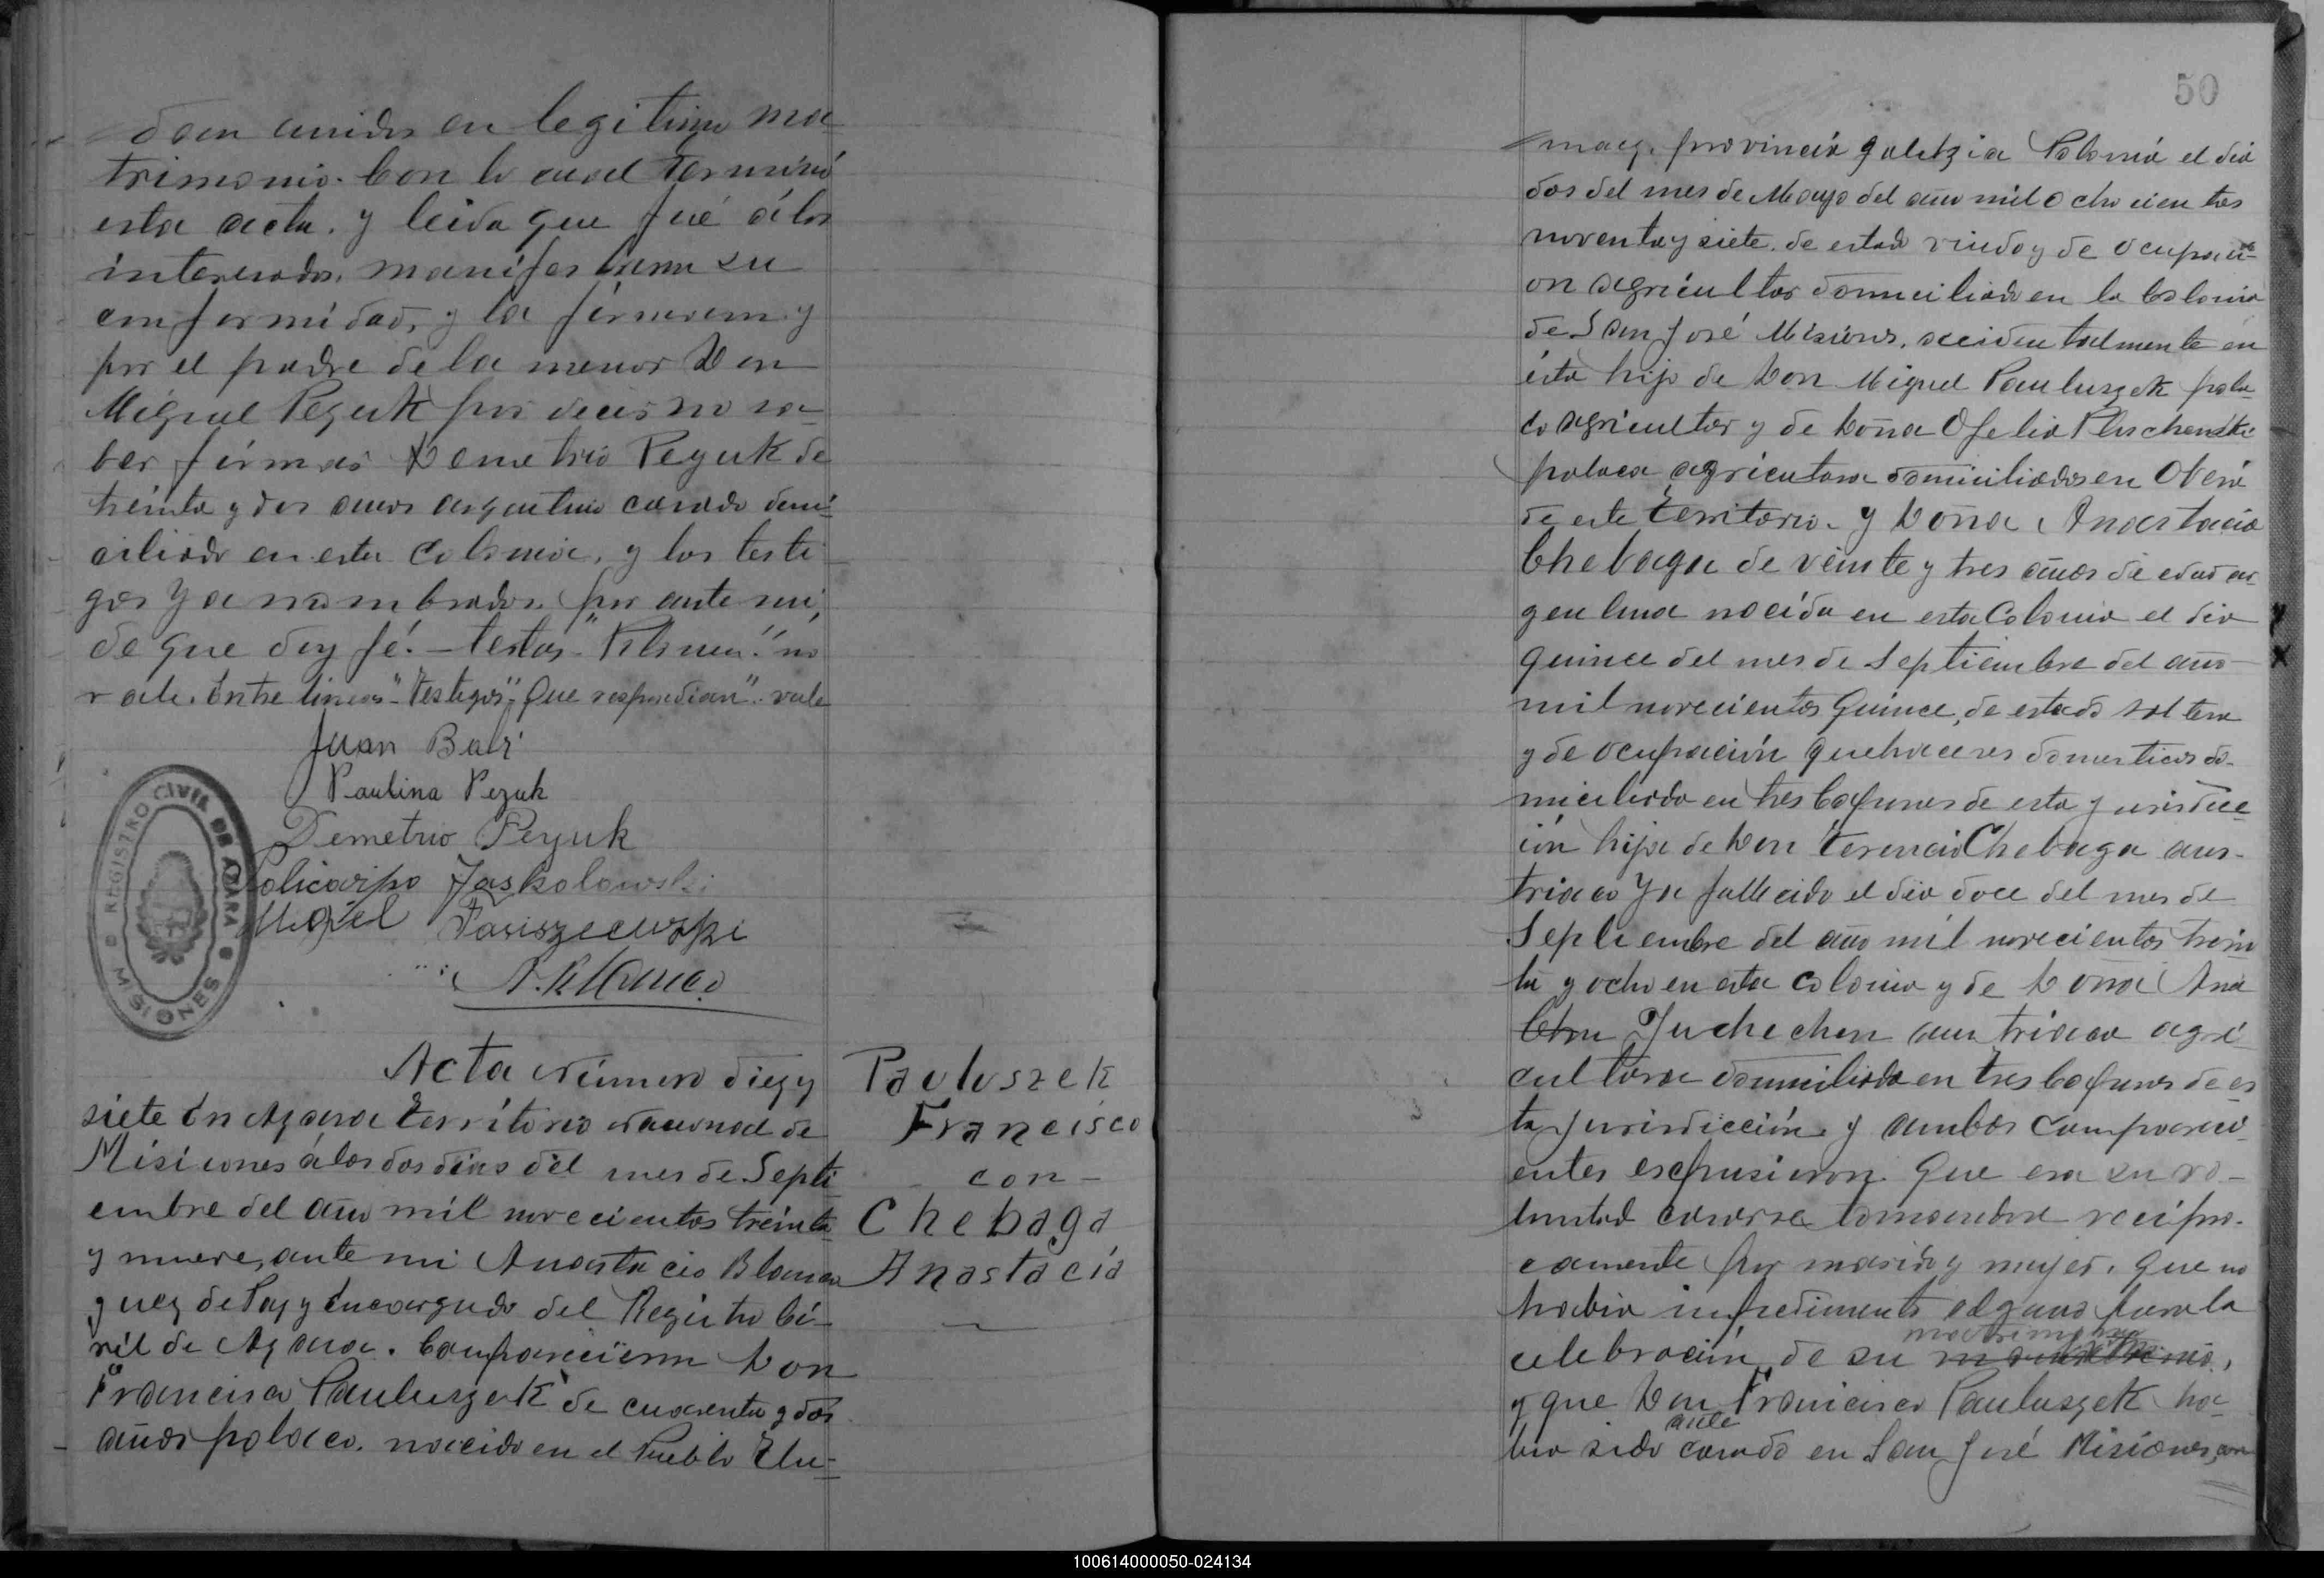 dan unidos en legitimo ma
trimonio. Con lo cual terminó
esta acta. y leida que fué á los
interesados, manifestaron su
conformidad, y la firmaron y
por el padre de la menor Don
Miguel Pezuk por decir no sa-
ber firmar Demetrio Pezuk de
treinta y dos años argentino casado domi-
ciliado en esta Colonia, y los testi
gos ya nombrados. por ante mi,
de que doy fé. - testas - no
vale. Entre lineas - "testigos" - "Que respondian" - vale
Juan Bari
Paulina Pezuk
Demetrio Pezuk
Policarpo Jaskolowski
Migel
REGISTRO CIVIL DE AZARA
MISIONES
Acta Número diez y
siete En Azara Territorio Nacional de
Misiones á los dos dias del mes de Septi
embre del año mil novecientos treinta
y nueve, ante mi Anastacio Blanco
Juez de Paz y Encargado del Registro Ci-
vil de Azara. Comparecieron Don
Francisco Pauluszek de cuarenta y dos
años polaco. nacido en el Pueblo Elu-
Pauluszek
Francisco
con -
Chebaga
Anastacia
50
maez. provincia Galitzia Polonia el dia
dos del mes de Mayo del año mil ochocientos
noventa y siete. de estado viudo y de ocupaci-
on agricultor domiciliado en la Colonia
de San José Misiones. accidentalmente en
ésta hijo de Don Miguel Pauluszek pola-
co agricultor y de Doña Ofelia
polaca agricutora domiciliados en Oberá
de este territorio. y Doña Anastacia
Chebaga de veinte y tres años de edad ar
gentina nacida en esta Colonia el dia
quince del mes de Septiembre del año
mil novecientos Quince, de estado soltera
y de ocupación quehaceres domesticos do-
miciliada en tres Capones de esta jurisdic-
ción hija de Don Terencio Chebaga aus-
triaco ya fallecido el dia doce del mes de
Septiembre del año mil novecientos trein
ta y ocho en esta colonia y de Doña Ana
Juchechen austriaca agri
cultora domiciliada en tres Capones de es
ta jurisdicción y ambos compareci-
entes expusieron. Que era su vo-
luntad casarse tomandose recipro-
camente por marido y mujer. Que no
habia impedimento alguno para la
matrimonio
celebración de su
y que Don Francisco Pauluszek ha-
ante
bia sido casado en San José Misiones, con
100614000050-024134